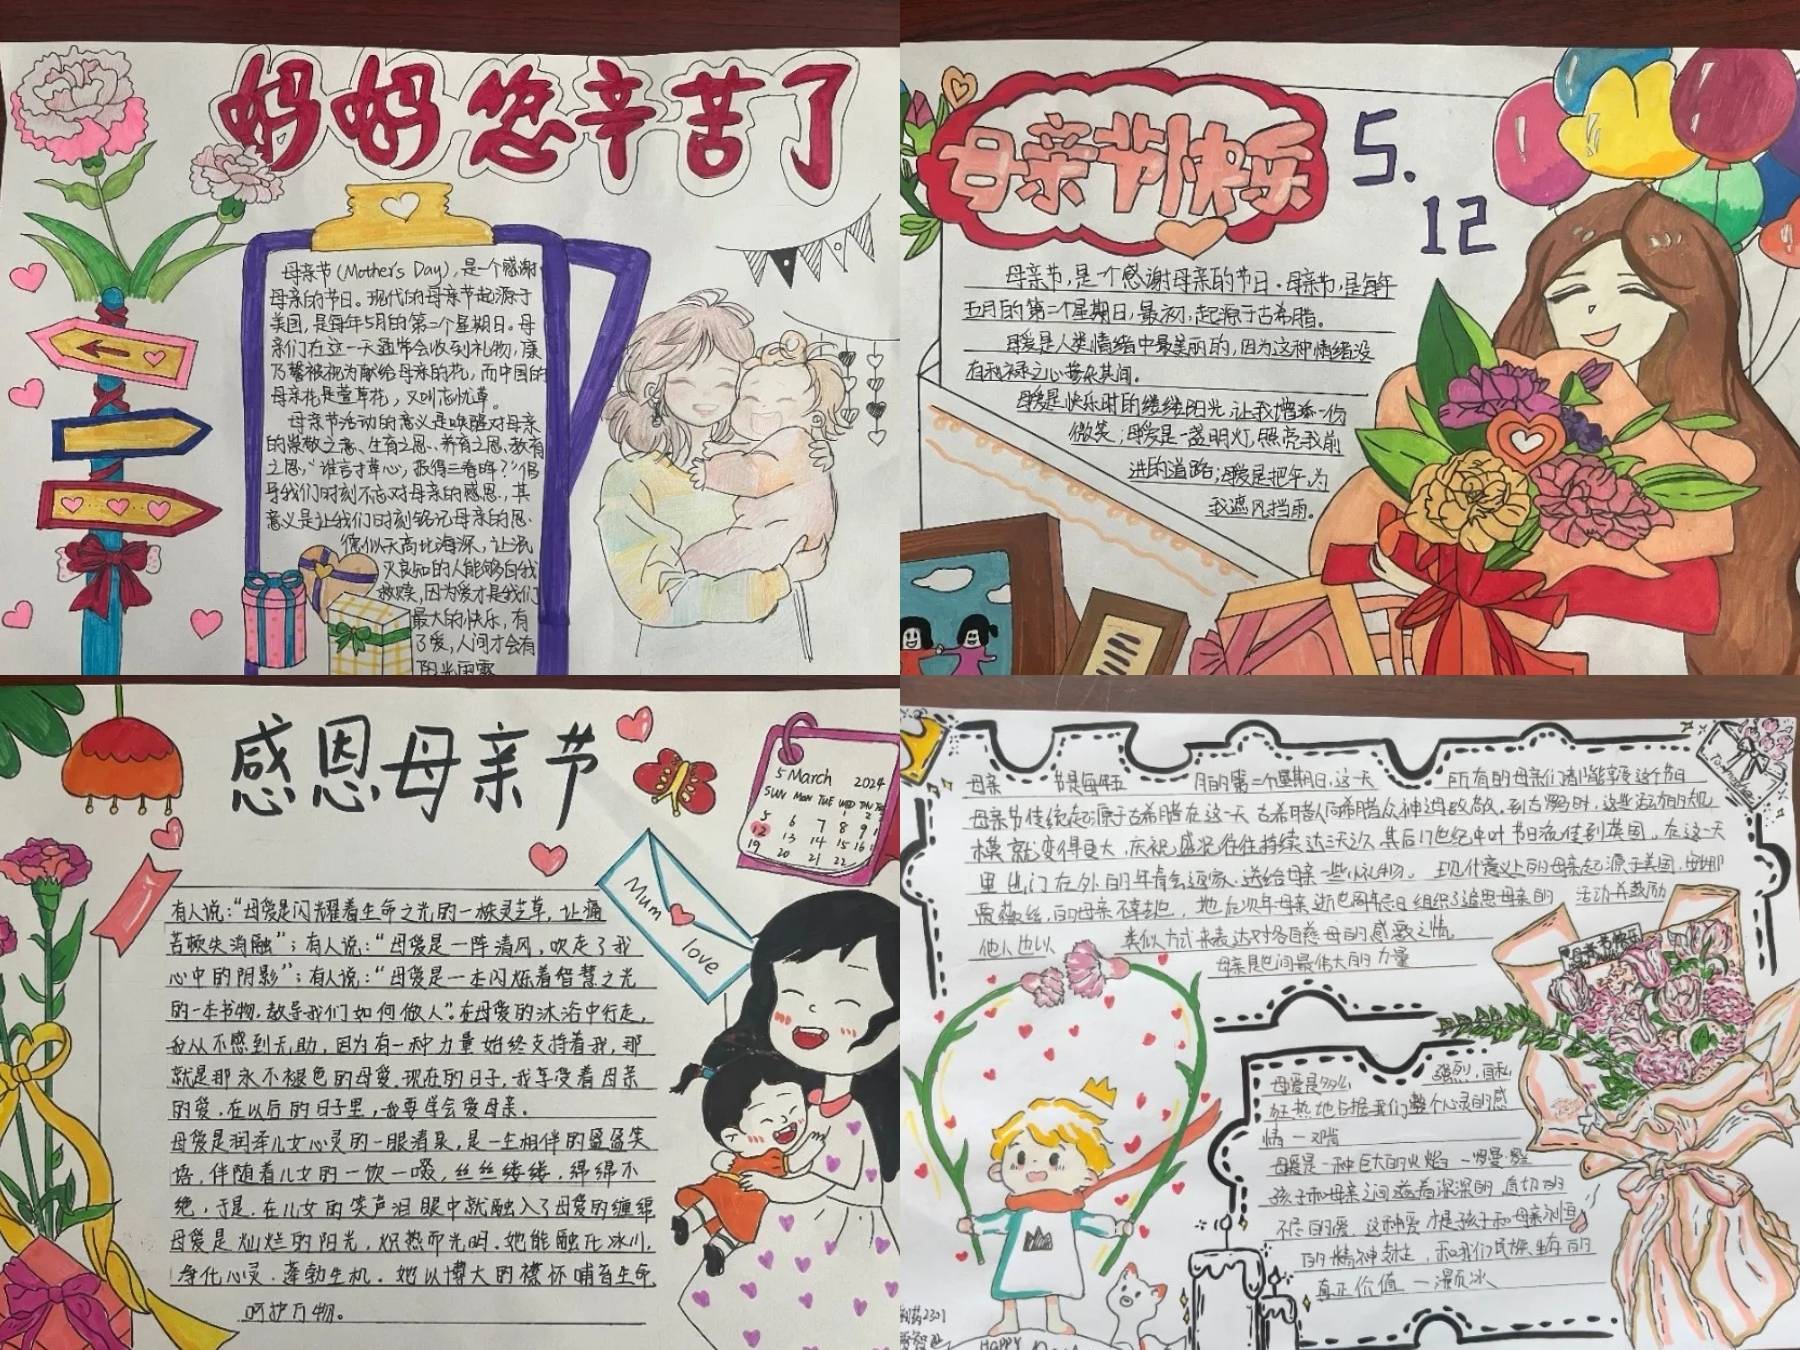 妈妈您辛苦了
母亲节(Mother's Day),是一个感谢
母亲的节日。现代的母亲节起源于
美国,是每年5月的第二个星期日。母
亲们在这一天通常会收到礼物,康
乃馨被视为献给母亲的花,而中国的
母亲花是萱草花,又叫忘忧草。
母亲节活动的意义是唤醒对母亲
的崇敬之意、生育之恩、养育之恩、教育
之恩,"谁言寸草心,报得三春晖?"倡
导我们时刻不忘对母亲的感恩,其
意义是让我们时刻铭记母亲的恩
德似天高比海深,让泯
灭良知的人能够自我
救赎,因为爱才是我们
最大的快乐,有
了爱,人间才会有
阳光雨露
母亲节快乐
5.
12
母亲节,是一个感谢母亲的节日。母亲节,是每年
五月的第二个星期日,最初,起源于古希腊。
母爱是人类情绪中最美丽的,因为这种情绪没
有利禄之心掺杂其间。
母爱是快乐时的缕缕阳光,让我增添一份
微笑;母爱是一盏明灯,照亮我前
进的道路;母爱是把伞,为
我遮风挡雨。
感恩母亲节
5 March 2024
SUN MON TUE WED THU
5 6 7 8 9
12 13 14 15 16
19 20 21 22
Mum love
有人说:"母爱是闪耀着生命之光的一株灵芝草,让痛
苦顿失消融";有人说:"母爱是一阵清风,吹走了我
心中的阴影";有人说:"母爱是一本闪烁着智慧之光
的一本书物,教导我们如何做人"。在母爱的沐浴中行走,
我从不感到无助,因为有一种力量始终支持着我,那
就是那永不褪色的母爱,现在的日子,我享受着母亲
的爱,在以后的日子里,我要学会爱母亲。
母爱是润泽儿女心灵的一眼清泉,是一生相伴的盈盈笑
语,伴随着儿女的一饮一啜,丝丝缕缕,绵绵不
绝,于是,在儿女的笑声泪眼中就融入了母爱的缠绵
母爱是灿烂的阳光,炽热而光明,她能融化冰川,
净化心灵,蓬勃生机。她以博大的襟怀哺育生命
呵护万物。
母亲 节是每年五 月的第二个星期日,这一天 所有的母亲们都能享受这个节日
母亲节传统起源于古希腊在这一天 古希腊人向希腊众神之母致敬。到古罗时,这些活动的规
模就变得更大,庆祝盛况往往持续达三天之久,其后17世纪中叶节日流传到英国。在这一天
里出门在外的年青会返家,送给母亲一些小礼物。现代意义上的母亲起源于美国,由
的母亲不幸去世,她在次年母亲逝世周年忌日组织了追思母亲的 活动并鼓励
他人也以 类似方式来表达对各自慈母的感激之情
母亲是世间最伟大的力量
母爱是多么 强烈,自私,
狂热地占据我们整个心灵的感
情 —邓肯
母爱是一种巨大的火焰 —罗曼·罗兰
孩子和母亲之间 着深深的,真切的
不尽的爱,这种爱才是孩子和母亲
的精神 和我们民族生存的
真正价值 —
HAPPY